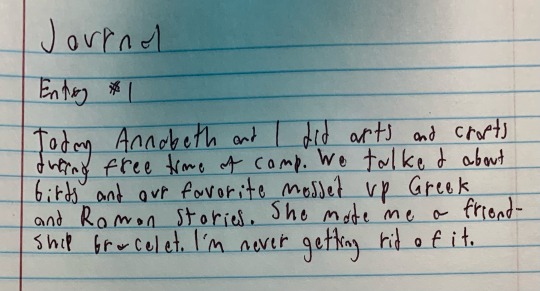 Journal
Entry #1
Today Annabeth and I did arts and crafts
during free time at camp. We talked about
birds and our favorite messed up Greek
and Roman stories. She made me a friend-
ship bracelet. I'm never getting rid of it.